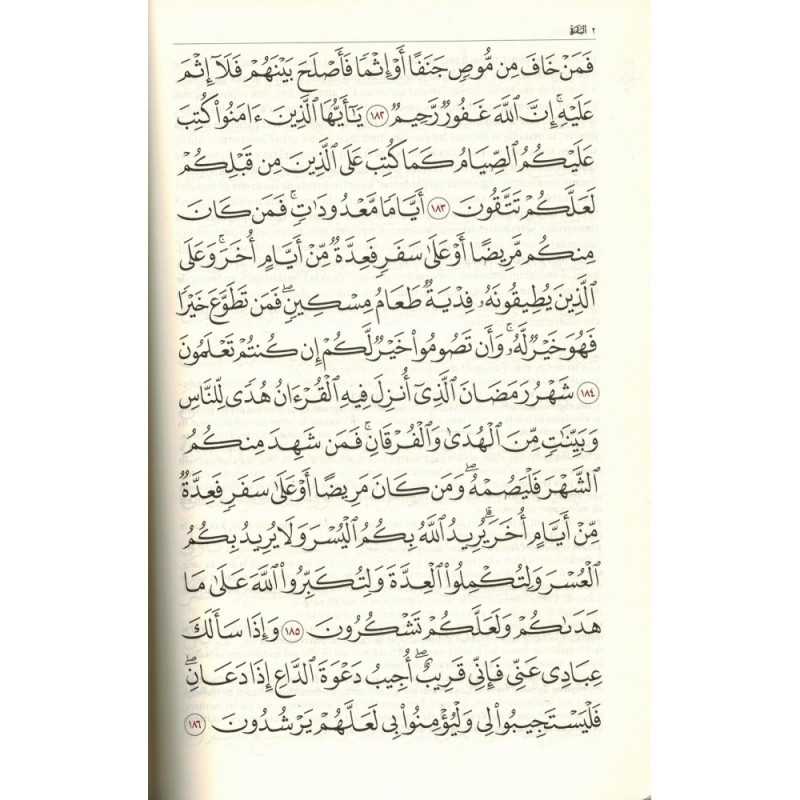 ٢ البقرة
فَمَنْ خَافَ مِن مُّوصٍ جَنَفًا أَوْ إِثْمًا فَأَصْلَحَ بَيْنَهُمْ فَلَآ إِثْمَ
عَلَيْهِ ۚ إِنَّ ٱللَّهَ غَفُورٌ رَّحِيمٌ ١٨٢ يَـٰٓأَيُّهَا ٱلَّذِينَ ءَامَنُوا۟ كُتِبَ
عَلَيْكُمُ ٱلصِّيَامُ كَمَا كُتِبَ عَلَى ٱلَّذِينَ مِن قَبْلِكُمْ
لَعَلَّكُمْ تَتَّقُونَ ١٨٣ أَيَّامًا مَّعْدُودَٰتٍ ۚ فَمَن كَانَ
مِنكُم مَّرِيضًا أَوْ عَلَىٰ سَفَرٍ فَعِدَّةٌ مِّنْ أَيَّامٍ أُخَرَ ۚ وَعَلَى
ٱلَّذِينَ يُطِيقُونَهُۥ فِدْيَةٌ طَعَامُ مِسْكِينٍ ۖ فَمَن تَطَوَّعَ خَيْرًا
فَهُوَ خَيْرٌ لَّهُۥ ۚ وَأَن تَصُومُوا۟ خَيْرٌ لَّكُمْ إِن كُنتُمْ تَعْلَمُونَ
١٨٤ شَهْرُ رَمَضَانَ ٱلَّذِىٓ أُنزِلَ فِيهِ ٱلْقُرْءَانُ هُدًى لِّلنَّاسِ
وَبَيِّنَـٰتٍ مِّنَ ٱلْهُدَىٰ وَٱلْفُرْقَانِ ۚ فَمَن شَهِدَ مِنكُمُ
ٱلشَّهْرَ فَلْيَصُمْهُ ۖ وَمَن كَانَ مَرِيضًا أَوْ عَلَىٰ سَفَرٍ فَعِدَّةٌ
مِّنْ أَيَّامٍ أُخَرَ ۗ يُرِيدُ ٱللَّهُ بِكُمُ ٱلْيُسْرَ وَلَا يُرِيدُ بِكُمُ
ٱلْعُسْرَ وَلِتُكْمِلُوا۟ ٱلْعِدَّةَ وَلِتُكَبِّرُوا۟ ٱللَّهَ عَلَىٰ مَا
هَدَىٰكُمْ وَلَعَلَّكُمْ تَشْكُرُونَ ١٨٥ وَإِذَا سَأَلَكَ
عِبَادِى عَنِّى فَإِنِّى قَرِيبٌ ۖ أُجِيبُ دَعْوَةَ ٱلدَّاعِ إِذَا دَعَانِ ۖ
فَلْيَسْتَجِيبُوا۟ لِى وَلْيُؤْمِنُوا۟ بِى لَعَلَّهُمْ يَرْشُدُونَ ١٨٦